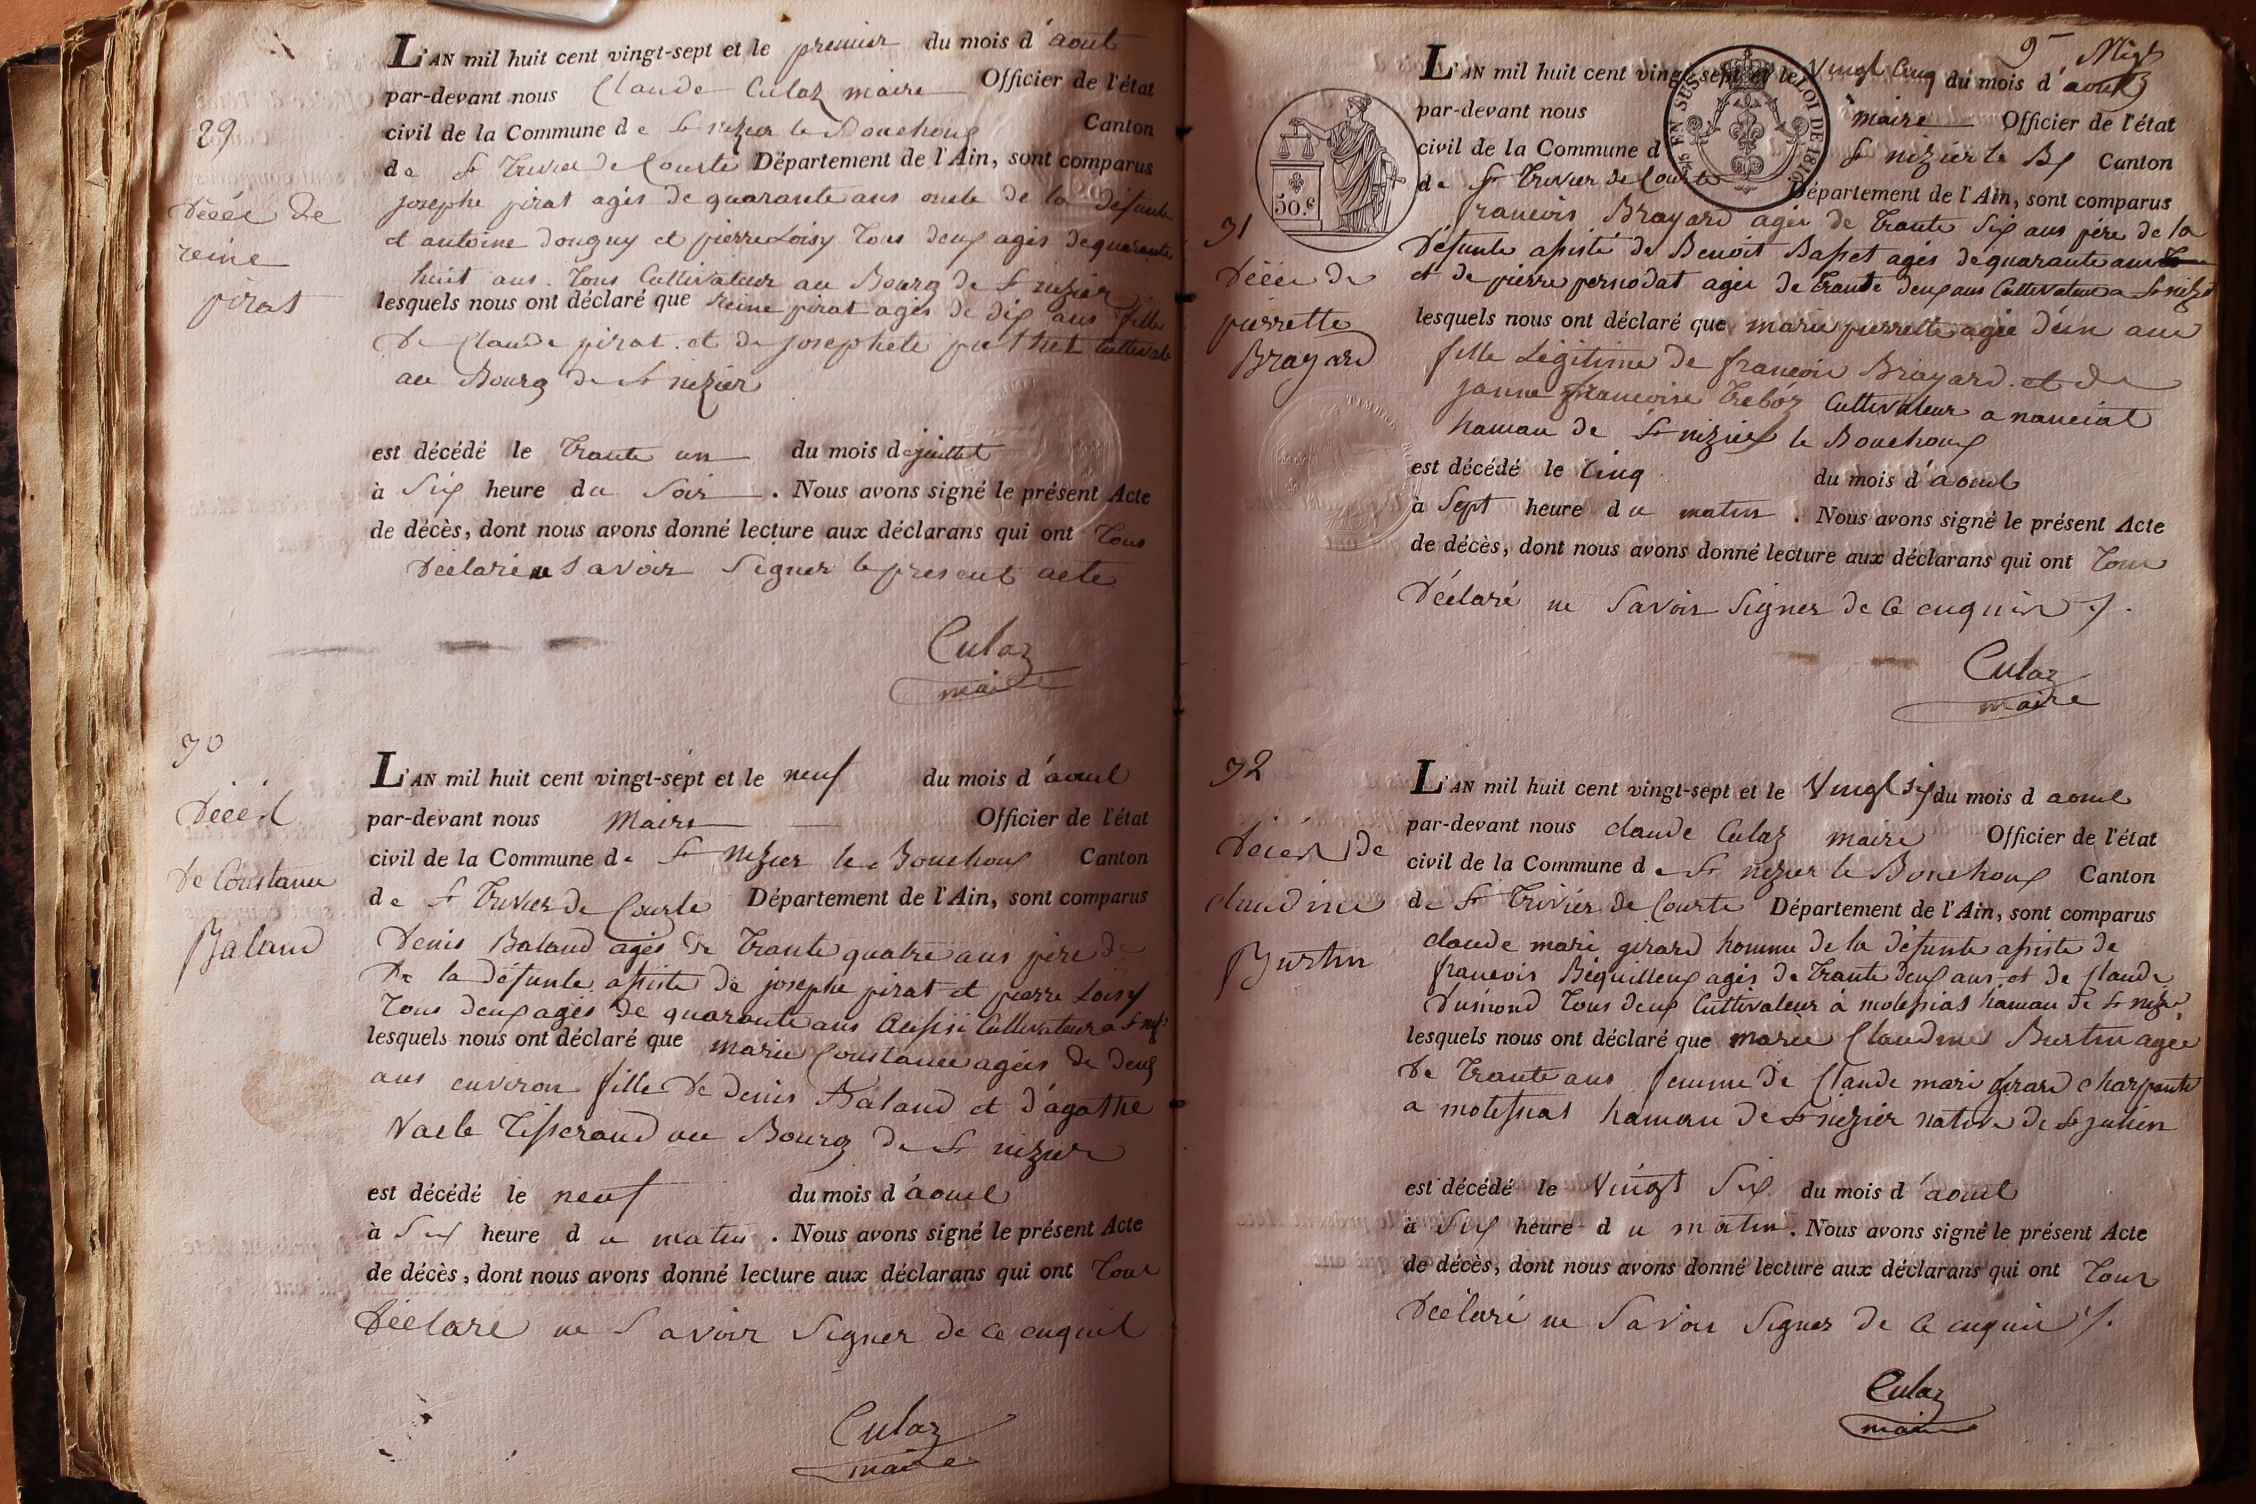 L'AN mil huit cent vingt-sept et le premier du mois d'aout
par-devant nous Claude Culaz maire Officier de l'état
29
civil de la Commune de St nizier le Bouchoux Canton
de St Trivier de Courte Département de l'Ain, sont comparus
Décée de
reine
pirat
josephe pirat agés de quarante ans oncle de la défunte
et antoine Donguy et pierre Loisy Tous deux agés de quarante
huit ans. Tous Cultivateur au Bourg de St nizier
lesquels nous ont déclaré que reine pirat agés de dix ans fille
De Claude pirat. et de josephete
au Bourg de St nizier
est décédé le Trante un du mois de juillet
à Six heure du Soir. Nous avons signé le présent Acte
de décès, dont nous avons donné lecture aux déclarans qui ont Tous
Déclaré ne Savoir Signer le present acte
Culaz
maire
30
Décéd
De Constance
Baland
L'AN mil huit cent vingt-sept et le neuf du mois d'aout
par-devant nous Maire Officier de l'état
civil de la Commune de St Nizier le Bouchoux Canton
de St Trivier de Courte Département de l'Ain, sont comparus
Denis Baland agés de Trante quatre ans père de
De la défunte assisté de josephe pirat et pierre Loisy
Tous deux agés de quarante ans Cultivateur a St
lesquels nous ont déclaré que marie Constance agés de deux
ans environ fille De denis Baland et d'agathe
Tisserand au Bourg de St nizier
est décédé le neuf du mois d'aout
à Six heure du matin. Nous avons signé le présent Acte
de décès, dont nous avons donné lecture aux déclarans qui ont Tous
Déclaré ne Savoir Signer de ce enquit
Culaz
maire
9
L'AN mil huit cent vingt-sept et le Vingt Cinq du mois d'aout
par-devant nous maire Officier de l'état
civil de la Commune d St nizier le Bx Canton
de St Trivier de Courte Département de l'Ain, sont comparus
EN SUS LOI DE 1816
50.c
31
Décée de
pierrette
Brayard
francois Brayard agée de Trante Six ans père de la
Défunte assisté de Benoit Basset agés de quarante ans
et de pierre pernodat agée de Trante deux ans Cultivateur a St nizier
lesquels nous ont déclaré que marie pierrette agée d'un ans
fille Légitime de francois Brayard. et de
janne francoise Treboz Cultivateur a nanciat
hamau de St nizier le Bouchoux
est décédé le Cinq du mois d'aout
à Sept heure du matin. Nous avons signé le présent Acte
de décès, dont nous avons donné lecture aux déclarans qui ont Tous
Déclaré ne Savoir Signer de ce enquis
Culaz
maire
32
Décès de
claudine
Burtin
L'AN mil huit cent vingt-sept et le Vingt six du mois d aout
par-devant nous claude Culaz maire Officier de l'état
civil de la Commune de St nizier le Bouchoux Canton
de St Trivier de Courte Département de l'Ain, sont comparus
claude mari girard homme de la défunte assiste de
francois Béquilleux agés de Trante deux ans et de Claude
Dumond Tous deux Cultivateur à molessias hamau de St nizier
lesquels nous ont déclaré que marie Claudine Burtin agée
De Trante ans femme de Claude mari girard Charpantié
a molessias hamau de St nizier native de St julien
est décédé le Vingt Six du mois d'aout
à Six heure du matin. Nous avons signé le présent Acte
de décès, dont nous avons donné lecture aux déclarans qui ont Tous
Déclaré ne Savoir Signer de ce enquis
Culaz
maire